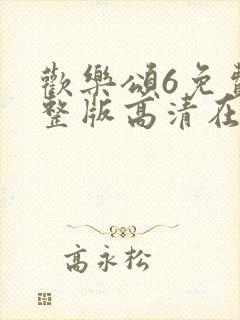 歡樂頌6免費
整版高清在
高永松